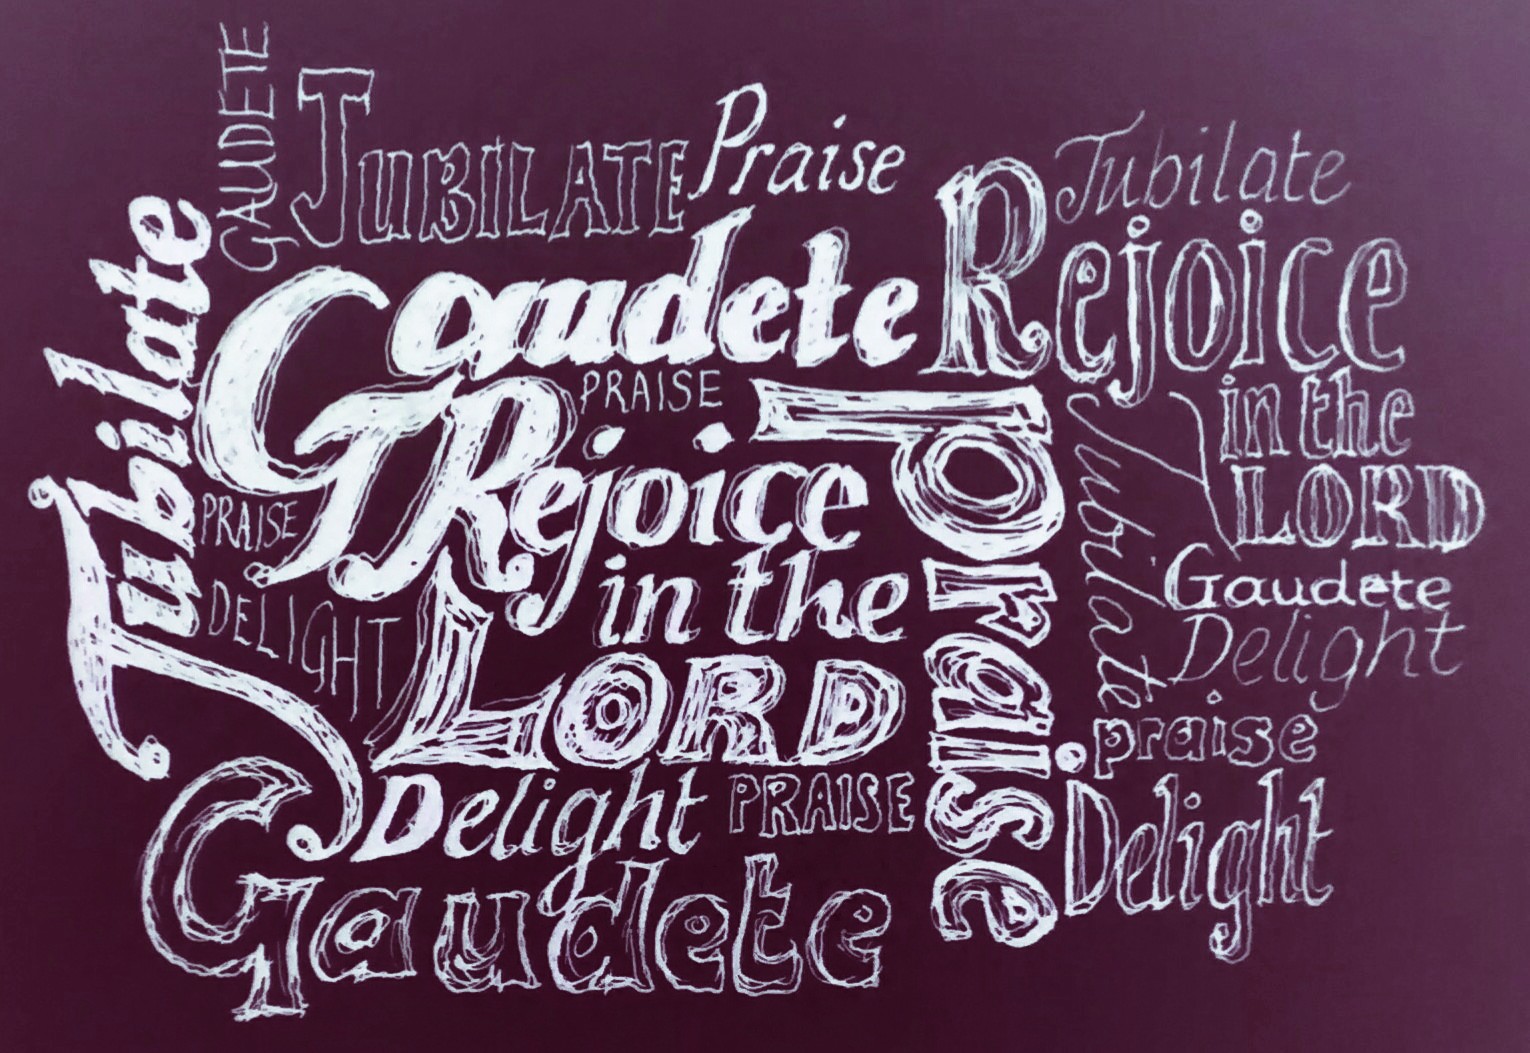 GAUDETE
JUBILATE
Praise
Jubilate
Jubilate
Gaudete
Rejoice
PRAISE
Rejoice
in the
LORD
in the
LORD
praise
Jubilate
PRAISE
DELIGHT
Gaudete
Delight
praise
Delight
PRAISE
Delight
Gaudete